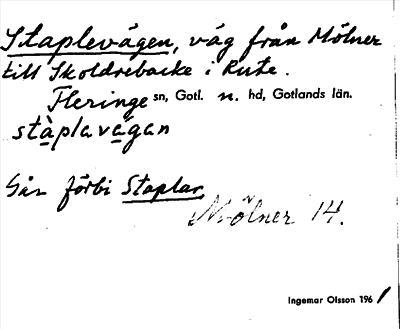 Staplevägen, väg från Mölner
till Skoldrebacke i Rute.
Fleringe sn, Gotl. n. hd, Gotlands län.
stàplavägan
Går förbi Staplar.
Mölner 14.
Ingemar Olsson 1961